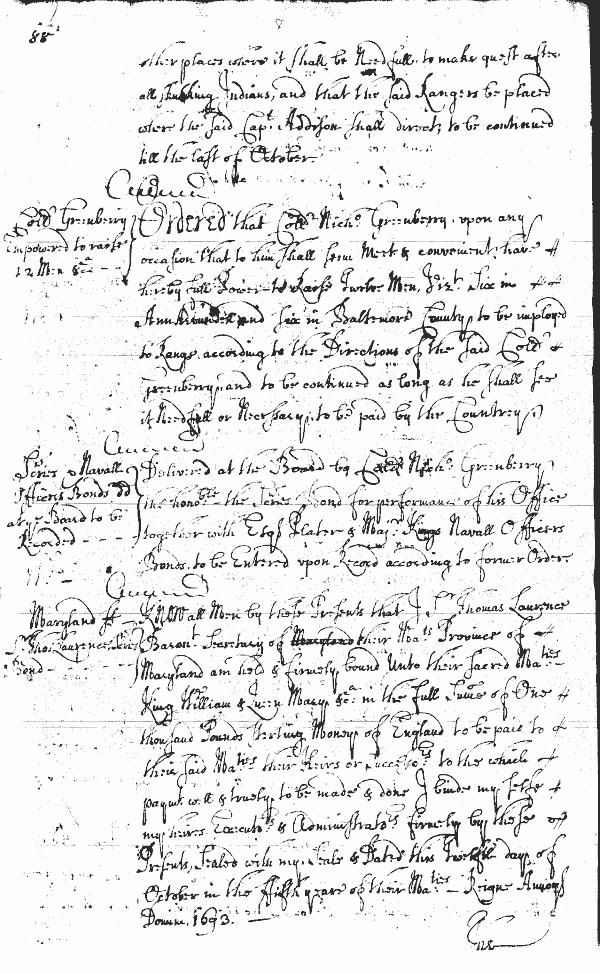 88
other places where it shall be Needfull, to make quest after
all skulking Indians, and that the said Rangers be placed
where the said Capt Addison shall direct, to be continued
till the last of October
Colo Greenberry
Empowered to raise
12 Men &ca
Ordered that Colo Nicho Greenberry upon any
occasion that to him shall seem Meet & convenient, have
hereby full Power to Raise Twelve Men, Vizt Six in
Ann Arundell and six in Baltemore County, to be imployed
to Range according to the Directions of the said Colo
Greenberry, and to be continued as long as he shall see
it Needfull or Necessary, to be paid by the Countrey
Secrs & Navall
Officers Bonds dd
at ye Board to be
Recorded
Delivered at the Board by Colo Nicho Greenberry
the honoble the Secrs Bond for performance of his Office
together with Esqr Plater & Majr Kings Navall Officers
Bonds, to be Entered upon Record according to former Order.
Maryland ss
Sr Tho: Laurence Secrs
Bond
KNOW all Men by these Presents that I Sr Thomas Laurence
Baront Secretary of Maryland their Mats Province of
Maryland am held & firmely bound Unto their Sacred Maties
King William & Queen Mary, &ca in the full Sume of One
thousand Pounds sterling Money of England to be paid to
their said Maties their Heirs or Successors to the which
paymt well & truely to be made & done I binde my selfe
my heires Executrs & Administratrs firmely by these
Presents, Sealed with my Seale & Dated this Twelfth day of
October in the ffifth yeare of their Maties Reigne Annoqe
Domini 1693.
The